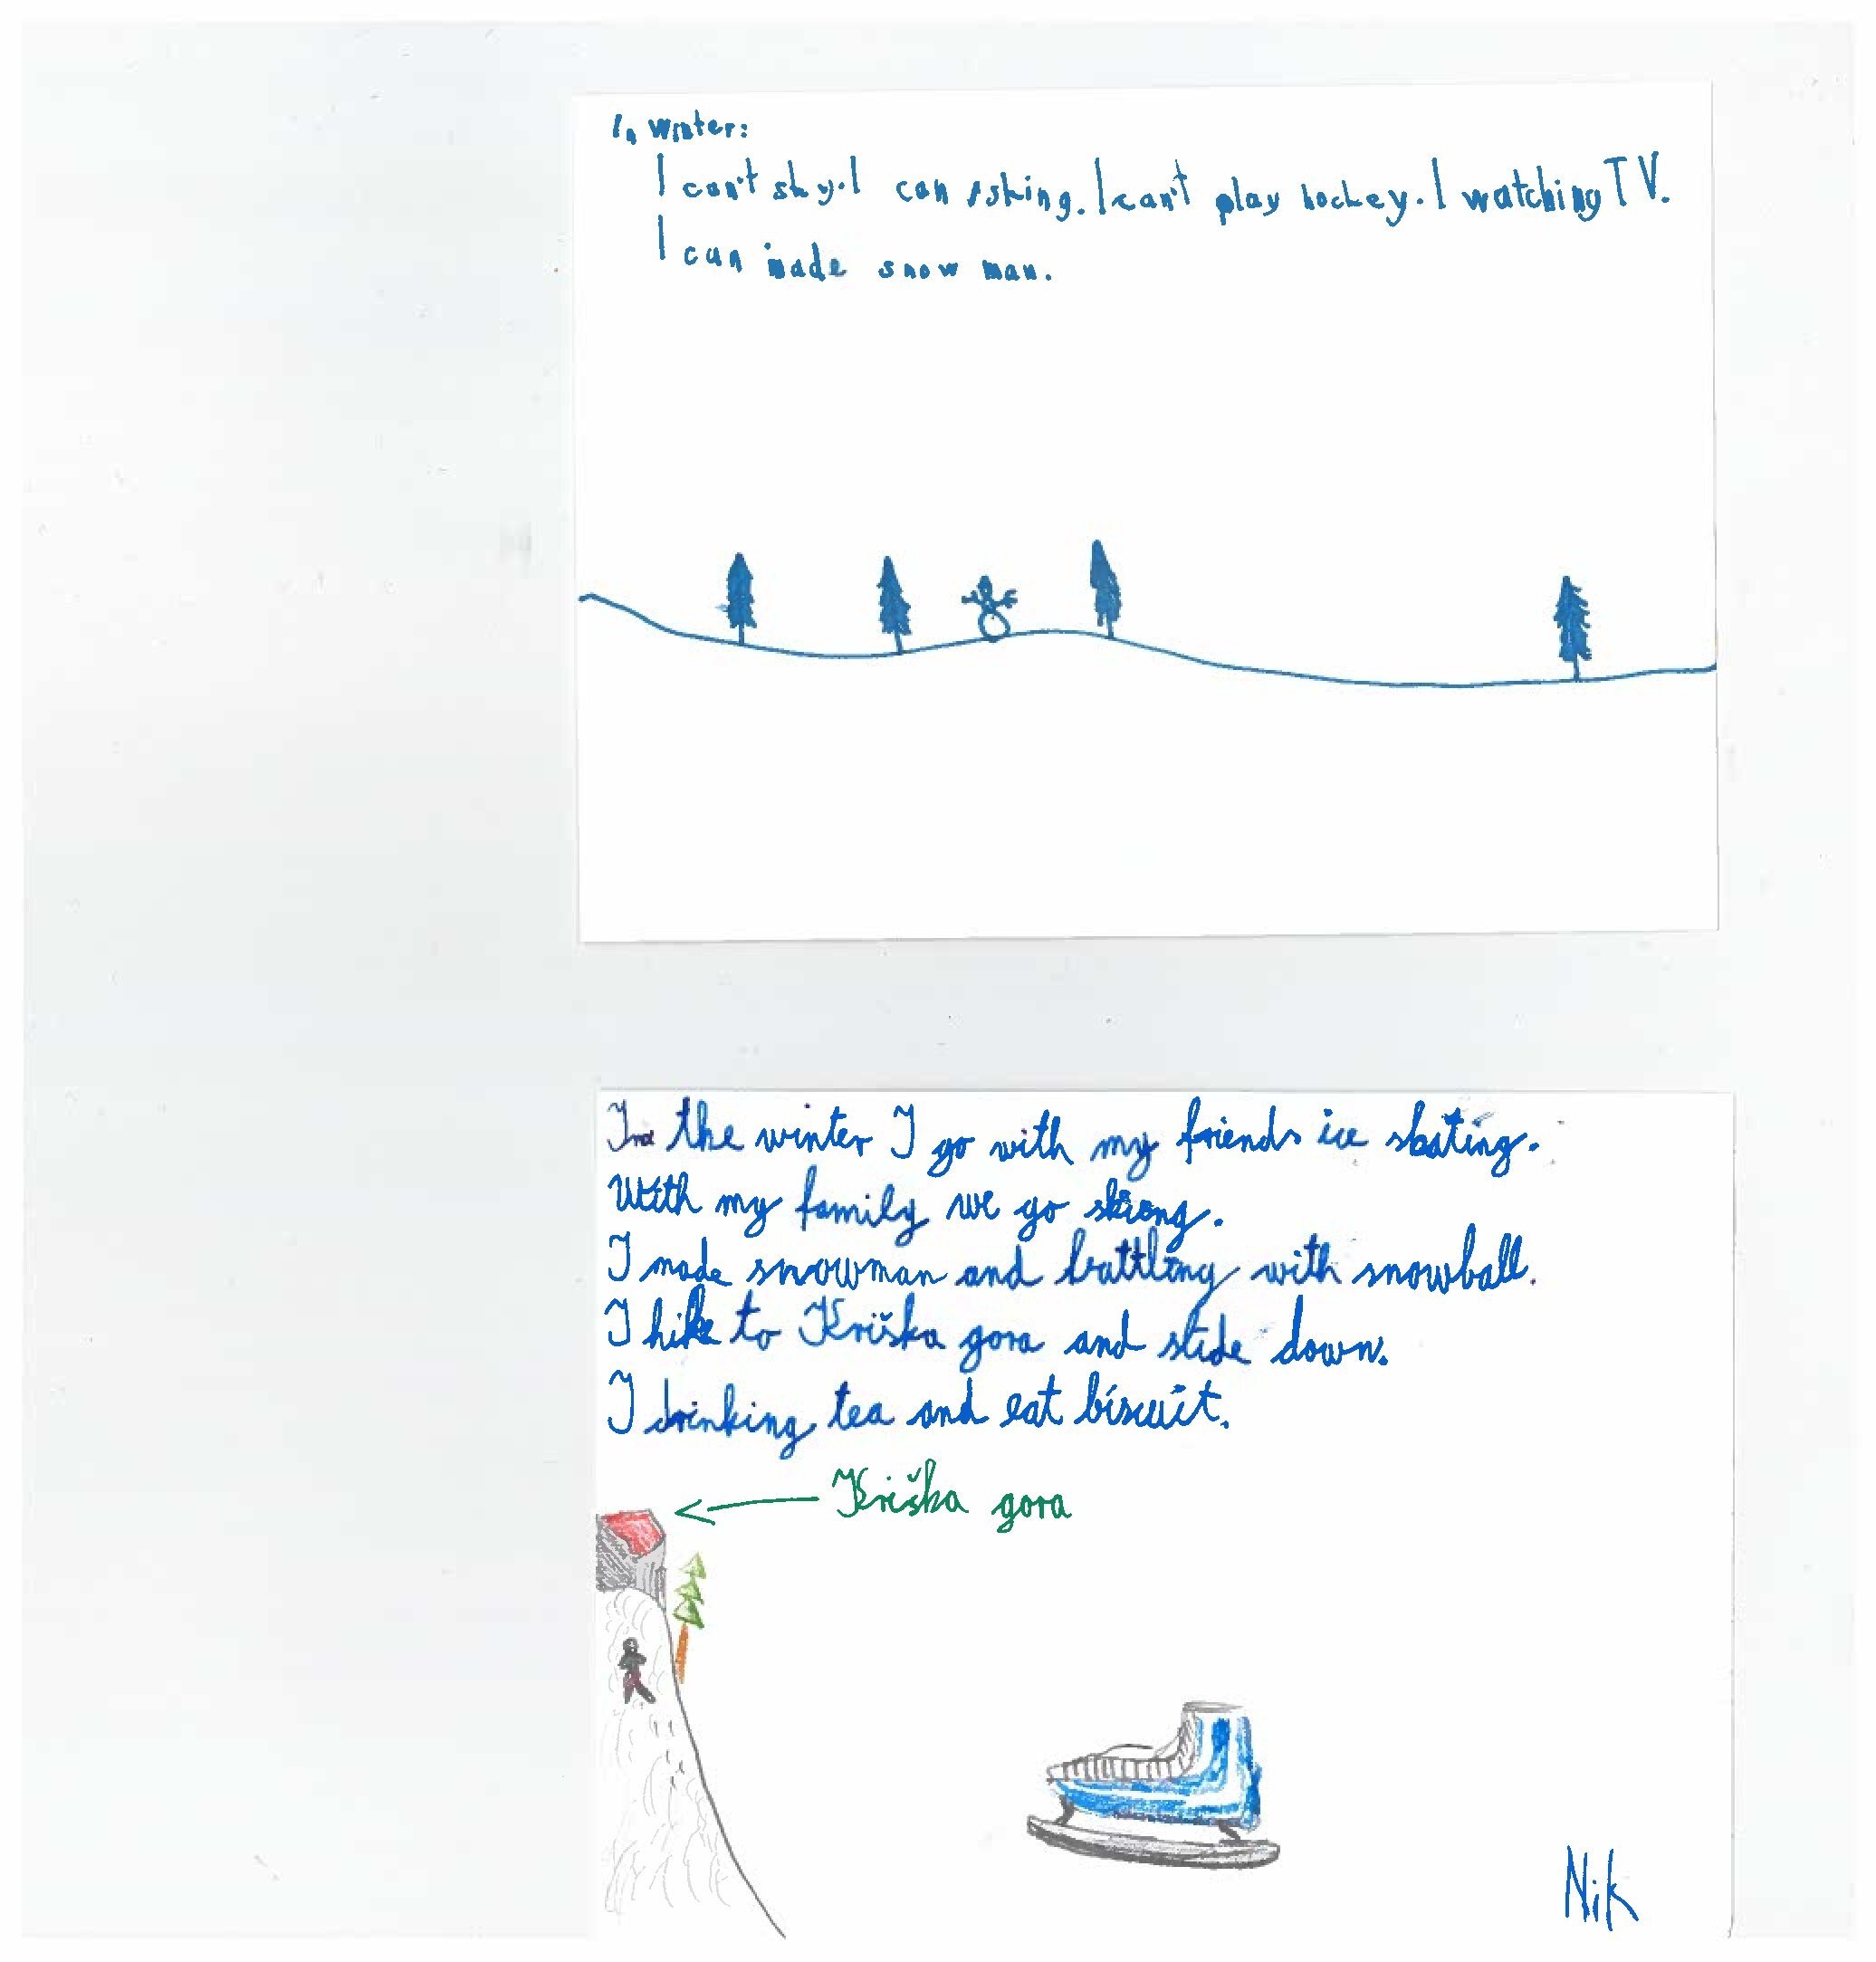 In winter:
I can't sky. I can sking. I can't play hockey. I watching TV.
I can made snow man.
In the winter I go with my friends ice skating.
With my family we go skiing.
I made snowman and battling with snowball.
I hike to Kriška gora and slide down.
I drinking tea and eat biscuit.
Kriška gora
Nik